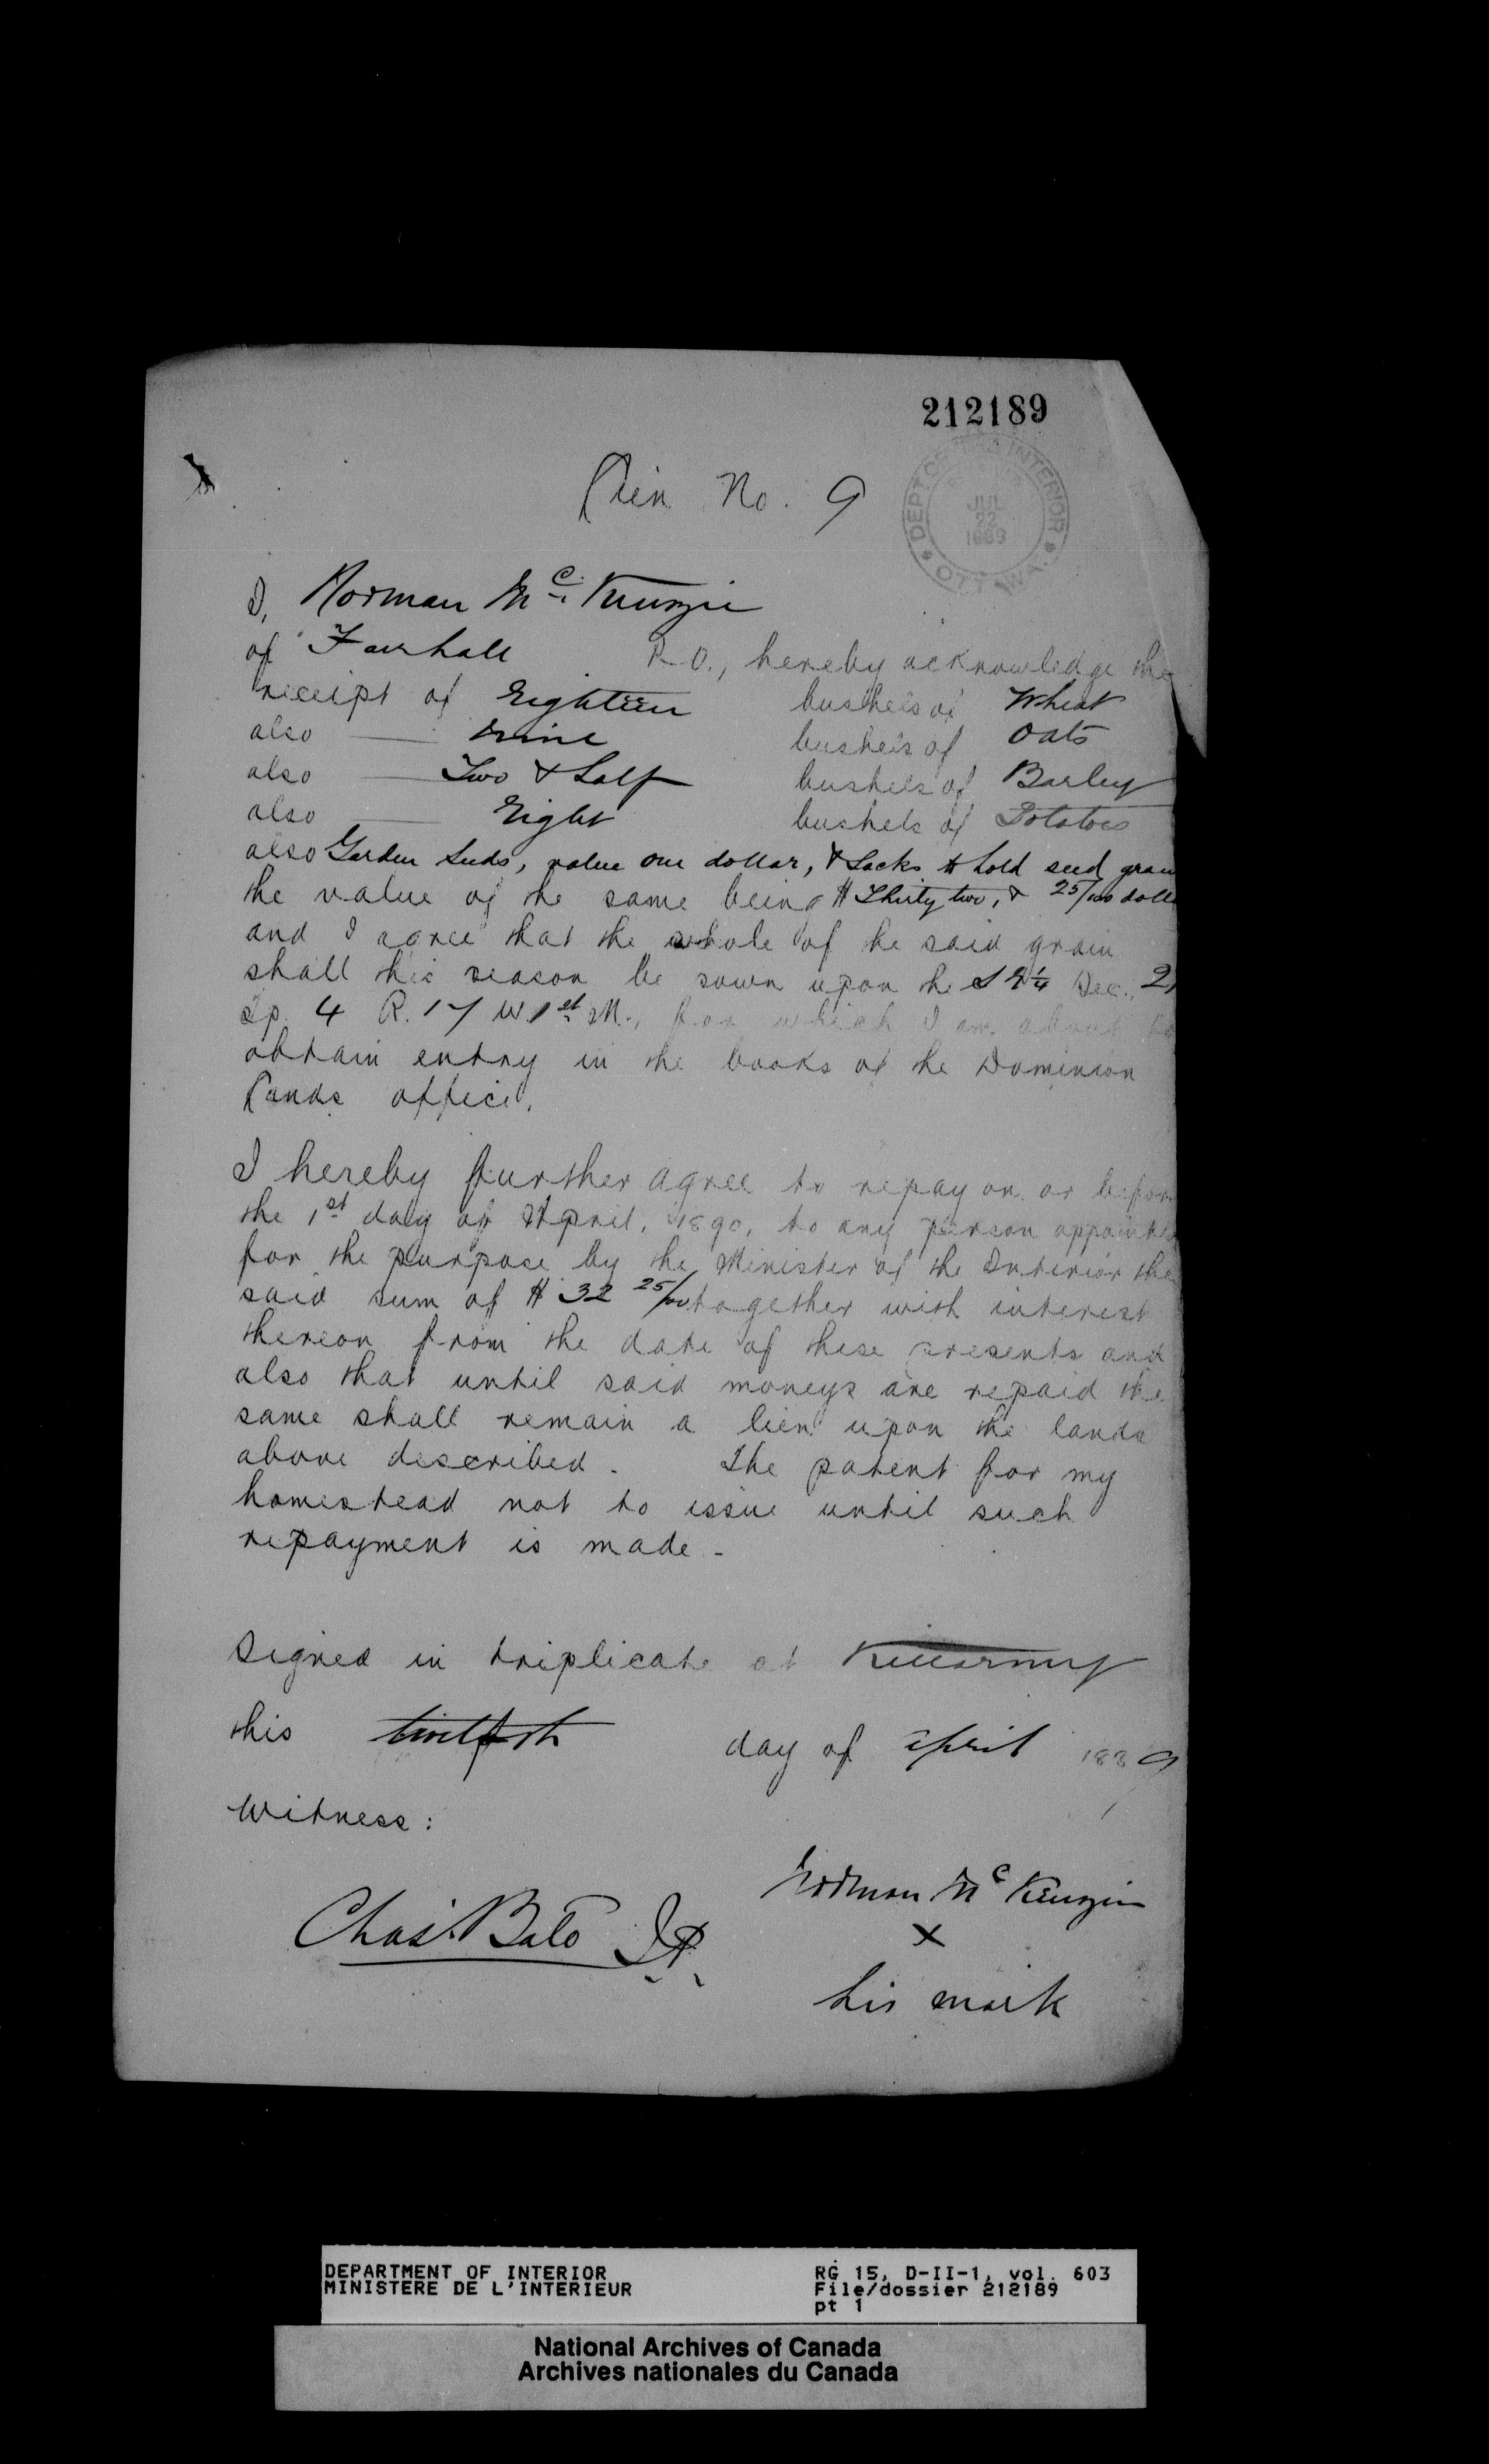 212189
Lien No. 9
DEPT OF THE INTERIOR
JUL
22
1889
OTTAWA
I, Norman McKenzie
of Fairhall P.O., hereby acknowledge the
receipt of Eighteen bushels of Wheat
also nine bushels of Oats
also Two & half bushels of Barley
also Eight bushels of Potatoes
also Garden Seeds, value one dollar, & Sacks to hold seed grain
the value of the same being $ Thirty two, & 25/100 doll
and I agree that the whole of the said grain
shall this season be sown upon the S E 1/4 Sec.
Tp. 4 R. 17 W 1st M., for which I am about to
obtain entry in the books of the Dominion
Lands office.
I hereby further agree to repay on or before
the 1st day of April, 1890, to any person appointed
for the purpose by the Minister of the Interior the
said sum of $ 32 25/100 together with interest
thereon from the date of these presents and
also that until said moneys are repaid the
same shall remain a lien upon the lands
above described. The patent for my
homestead not to issue until such
repayment is made -
Signed in triplicate at Killarney
this twelfth day of April 1889
Witness:
Norman McKenzie
Chas. Bate J.P.
X
his mark
DEPARTMENT OF INTERIOR
MINISTERE DE L'INTERIEUR
RG 15, D-II-1, vol. 603
File/dossier 212189
pt 1
National Archives of Canada
Archives nationales du Canada